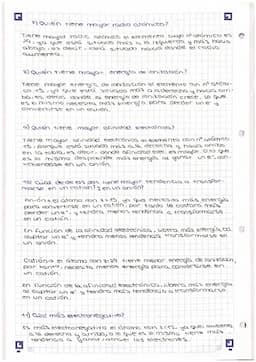 7) ¿Quién tiene mayor radio atómico?
Tiene mayor radio atómico el elemento cuyo nº atómico es
, ya que está situado más a la izquierda y más hacia
abajo, es decir, está situado hacia donde el radio
aumenta.
8) ¿Quién tiene mayor energía de ionización?
Tiene mayor energía de ionización el elemento con nº atómi-
co 15, ya que está situado más a la derecha y más hacia arri-
ba, es decir, donde la energía de ionización crece, lo que
es lo mismo necesita más energía para perder un e⁻ y
convertirse en un catión.
9) ¿Quién tiene mayor afinidad electrónica?
Tiene mayor afinidad electrónica el elemento con nº atómico
15, porque está situado más a la derecha y hacia arriba
en la tabla, es decir, donde afinidad elec. es mayor. O lo que
es lo mismo desprende más energía al ganar un e⁻, con-
virtiéndose en un anión.
10) ¿Cuál de de los dos tiene mayor tendencia a transfor-
marse en un catión? ¿y en un anión?
Anión: el átomo con Z=15, ya que necesita más energía
para convertirse en un catión por tanto le costará más
perder un e⁻, y tendrá menos tendencia a transformarse
en un catión.
En función de la afinidad electrónica, libera más energía al
captar un e⁻ y tendrá menos tendencia transformarse en
un anión.
Catión: el átomo con tiene menor energía de ionización,
por tanto necesita menos energía para convertirse en
un catión.
En función de la afinidad electrónica, libera más energía
al captar un e⁻ y tendrá más tendencia a transformarse
en un catión.
11) ¿Cuál más electronegativo?
Es más electronegativo el átomo con Z=15, ya que está
a la derecha y arriba, o lo que es lo mismo tiene más
tendencia a los electrones.